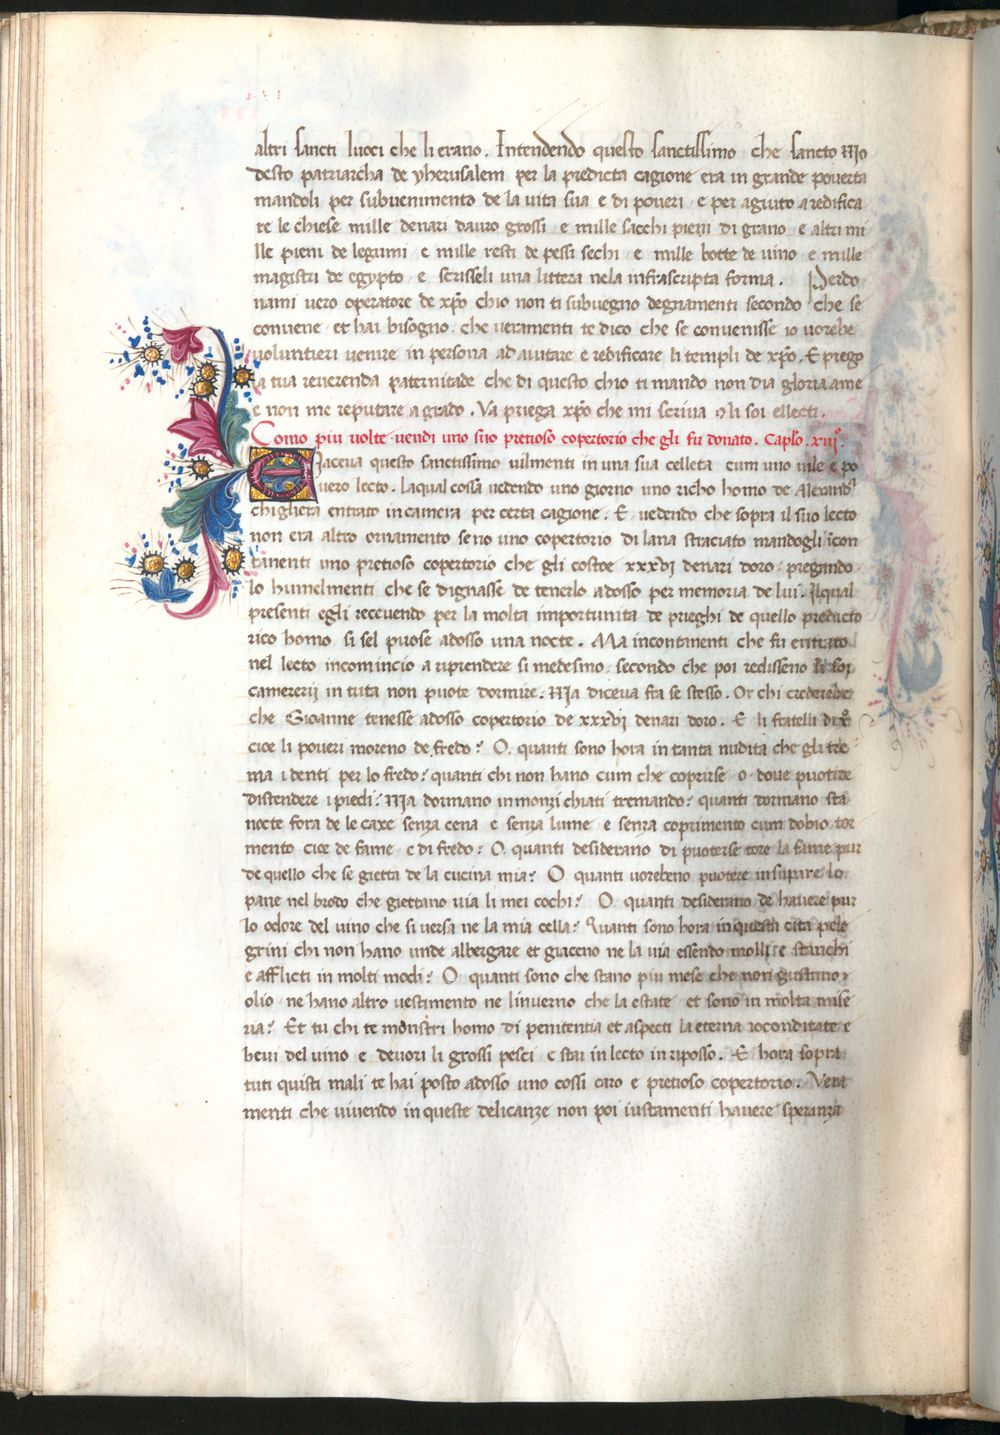 altri sancti luoci che li erano. Intendendo questo sanctissimo che sancto Mo
desto patriarcha de yherusalem per la predicta cagione era in grande poverta
mandoli per subvenimento de la vita sua e di poveri e per agiuto a redifica
re le chiese mille denari dauro grossi e mille sacchi pieni di grano e altri mi
lle pieni de legumi e mille resti de pessi sechi e mille botte de vino e mille
magistri de egypto e scrisseli una littera nela infrascripta forma. Perdo
nami vero operatore de xp̄o chio non ti subvegno degnamenti secondo che se
conviene et hai bisogno. che veramenti te dico che se convenisse io vorebe
voluntieri venire in persona ad aiutare e redificare li templi de xp̄o. E priego
la tua reverenda paternitade che di questo chio ti mando non dia gloria a me
e non me reputare a grado. Va priega xp̄o che mi scriva li soi ellecti.
Como piu volte vendi uno suo pretioso copertorio che gli fu donato. Caplo. xvij°.
Iaceva questo sanctissimo vilmenti in una sua celleta cum uno vile e po
vero lecto. La qual cossa vedendo uno giorno uno richo homo de Alexand
chi gliera entrato in camera per certa cagione. E vedendo che sopra il suo lecto
non era altro ornamento se no uno copertorio di lana straciato mandogli īcon
tanenti uno pretioso copertorio che gli costoe xxxvi denari doro. pregando
lo humelmenti che se dignasse de tenerlo adosso per memoria de lui. Il qual
presenti egli recevendo per la molta importunita de prieghi de quello predicto
rico homo si sel puose adosso una nocte. Ma incontinenti che fu entrato
nel lecto incomincio a riprendere si medesmo. secondo che poi redisseno li soi
camererii in tuta non puote dormire. Ma diceva fra se stesso. Or chi crederebe
che Gioanne tenesse adosso copertorio de xxxvi denari doro. E li fratelli di x°
cioe li poveri moreno de fredo? O. quanti sono hora in tanta nudita che gli tre
ma i denti per lo fredo? quanti chi non hano cum che coprirse o dove puotire
distendere i piedi? Ma dormano inmonzichiati tremando? quanti dormano sta
nocte fora de le caxe senza cena e senza lume e senza coprimento cum dobio tor
mento cioe de fame e di fredo? O. quanti desiderano di puoterse tore la fame pur
de quello che se gietta de la cucina mia? O quanti vorebeno puotere insupare lo
pane nel brodo che giettano via li mei cochi? O. quanti desiderano de havere pur
lo odore del vino che si versa ne la mia cella? Quanti sono hora in questa cita pele
grini chi non hano unde albergare et giaceno ne la via essendo molli e stanchi
e afflicti in molti modi? O quanti sono che stano piu mese che non gustano
olio ne hano altro vestimento ne linverno che la estate et sono in molta mise
ria? Et tu chi te monstri homo di penitentia et aspecti la eterna ioconditate e
bevi del vino e devori li grossi pesci e stai in lecto in riposso. E hora sopra
tuti quisti mali te hai posto adosso uno cossi caro e pretioso copertorio. Vera
menti che vivendo in queste delicanze non poi iustamenti havere speranza